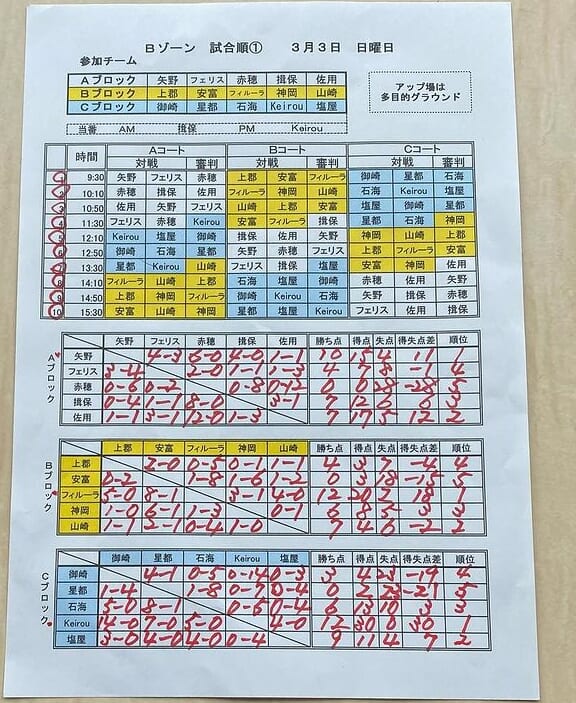 Bゾーン 試合順① 3月3日 日曜日
参加チーム
Aブロック 矢野 フェリス 赤穂 揖保 佐用
Bブロック 上郡 安富 フィルーラ 神岡 山崎
Cブロック 御崎 星都 石海 Keirou 塩屋
アップ場は
多目的グラウンド
当番 AM 揖保 PM Keirou
時間 Aコート Bコート Cコート
対戦 審判 対戦 審判 対戦 審判
① 9:30 矢野 フェリス 赤穂 上郡 安富 フィルーラ 御崎 星都 石海
2 10:10 赤穂 揖保 佐用 フィルーラ 神岡 山崎 石海 Keirou 塩屋
3 10:50 佐用 矢野 フェリス 山崎 上郡 安富 塩屋 御崎 星都
4 11:30 フェリス 赤穂 Keirou 安富 フィルーラ 揖保 星都 石海 神岡
5 12:10 Keirou 塩屋 御崎 揖保 佐用 矢野 神岡 山崎 上郡
6 12:50 御崎 石海 星都 矢野 赤穂 フェリス 上郡 フィルーラ 安富
7 13:30 星都 Keirou 山崎 フェリス 揖保 塩屋 安富 神岡 佐用
8 14:10 フィルーラ 山崎 上郡 石海 塩屋 御崎 佐用 赤穂 矢野
9 14:50 上郡 神岡 フィルーラ 御崎 Keirou 石海 矢野 揖保 赤穂
10 15:30 安富 山崎 神岡 塩屋 星都 Keirou フェリス 佐用 揖保
Aブロック
矢野 フェリス 赤穂 揖保 佐用 勝ち点 得点 失点 得失点差 順位
矢野 4-3 6-0 4-0 1-1 10 15 4 11 1
フェリス 3-4 2-0 1-1 1-3 4 7 8 -1 4
赤穂 0-6 0-2 0-8 0-12 0 0 28 -28 5
揖保 0-4 1-1 8-0 3-1 7 12 6 6 3
佐用 1-1 3-1 12-0 1-3 7 17 5 12 2
Bブロック
上郡 安富 フィルーラ 神岡 山崎 勝ち点 得点 失点 得失点差 順位
上郡 2-0 0-5 0-1 1-1 4 3 7 -4 4
安富 0-2 1-8 1-6 1-2 0 3 18 -15 5
フィルーラ 5-0 8-1 3-1 4-0 12 20 2 18 1
神岡 1-0 6-1 1-3 0-1 6 8 5 3 3
山崎 1-1 2-1 0-4 1-0 7 4 6 -2 2
Cブロック
御崎 星都 石海 Keirou 塩屋 勝ち点 得点 失点 得失点差 順位
御崎 4-1 0-5 0-14 0-3 3 4 23 -19 4
星都 1-4 1-8 0-7 0-4 0 2 23 -21 5
石海 5-0 8-1 0-5 0-4 6 13 10 3 3
Keirou 14-0 7-0 5-0 4-0 12 30 0 30 1
塩屋 3-0 4-0 4-0 0-4 9 11 4 7 2